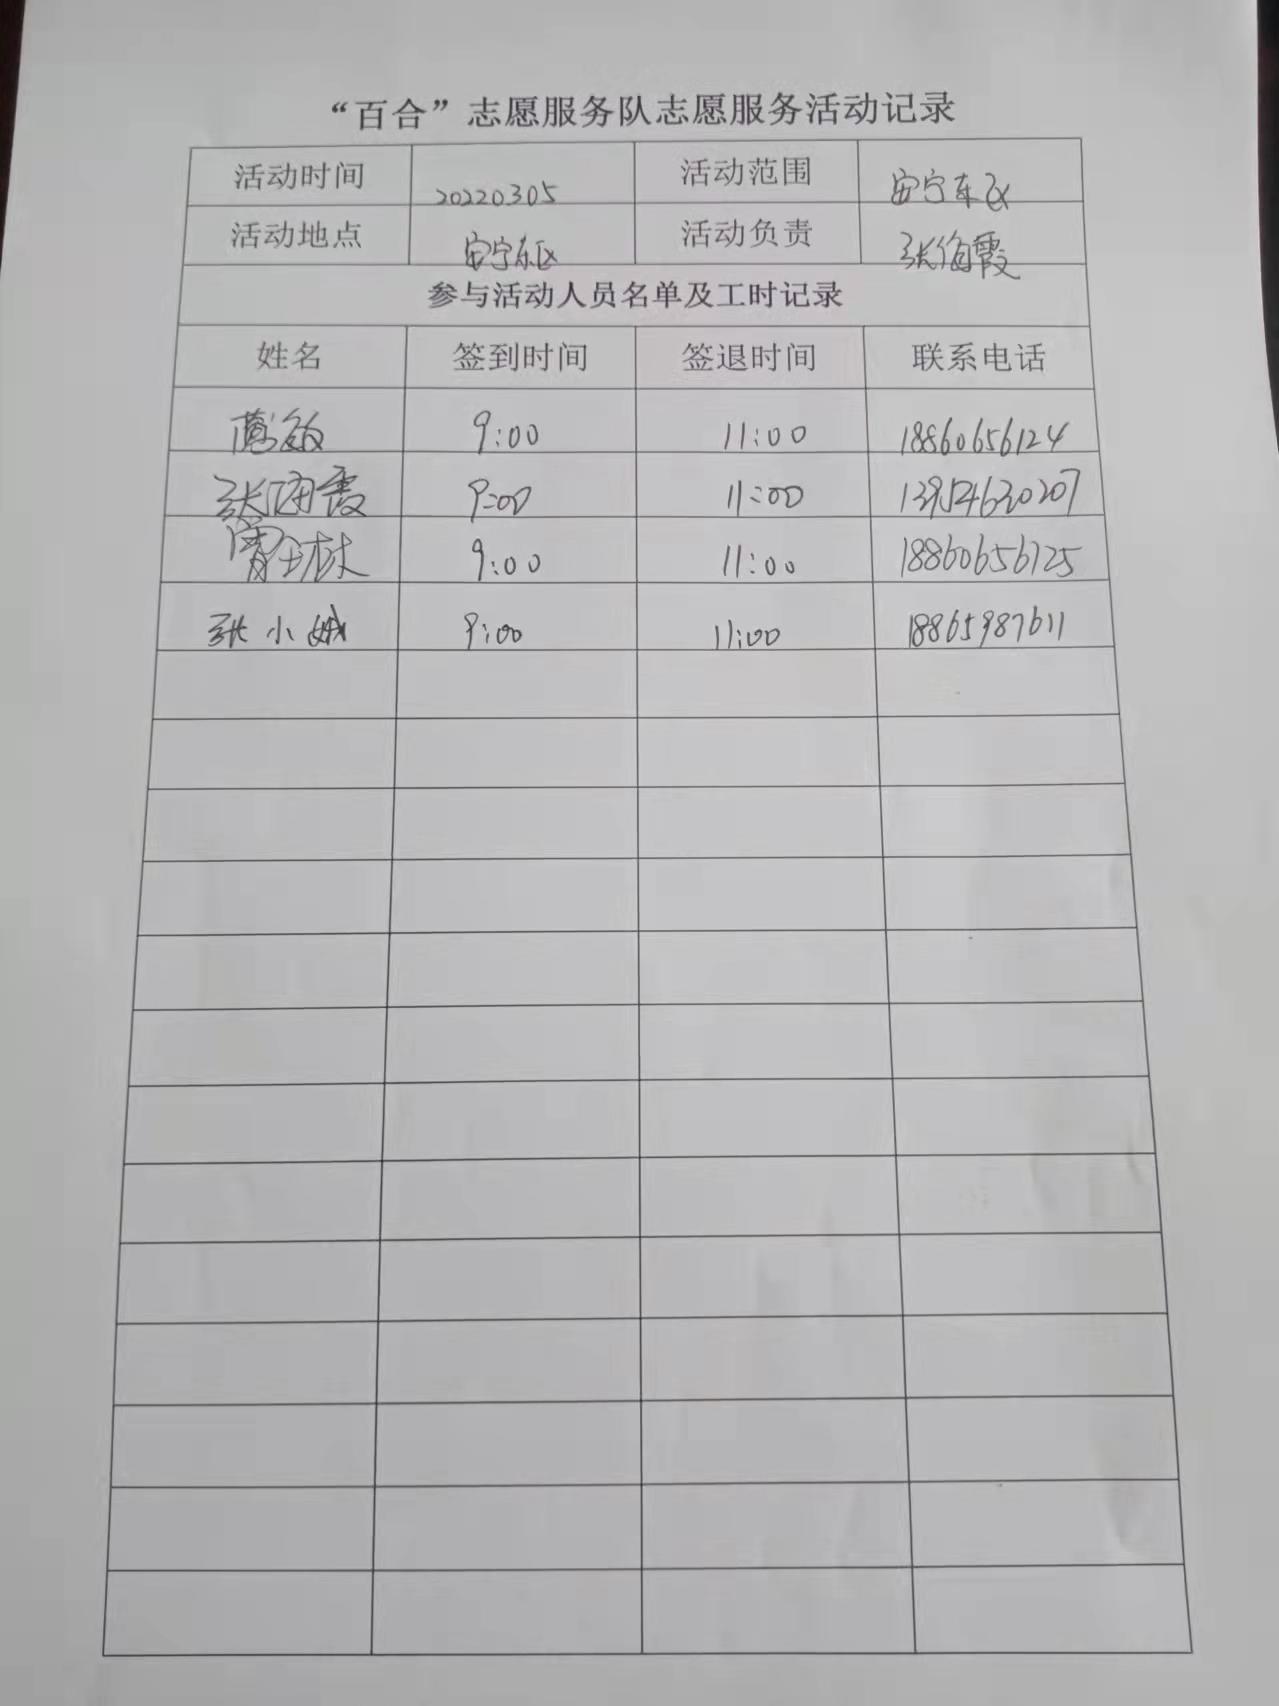 “百合”志愿服务队志愿服务活动记录
活动时间 20220305 活动范围 安宁东区
活动地点 安宁东区 活动负责 张海霞
参与活动人员名单及工时记录
姓名 签到时间 签退时间 联系电话
敏 9:00 11:00 18860656124
张海霞 9:00 11:00 13954630207
9:00 11:00 18860656125
张小娥 9:00 11:00 18865987611